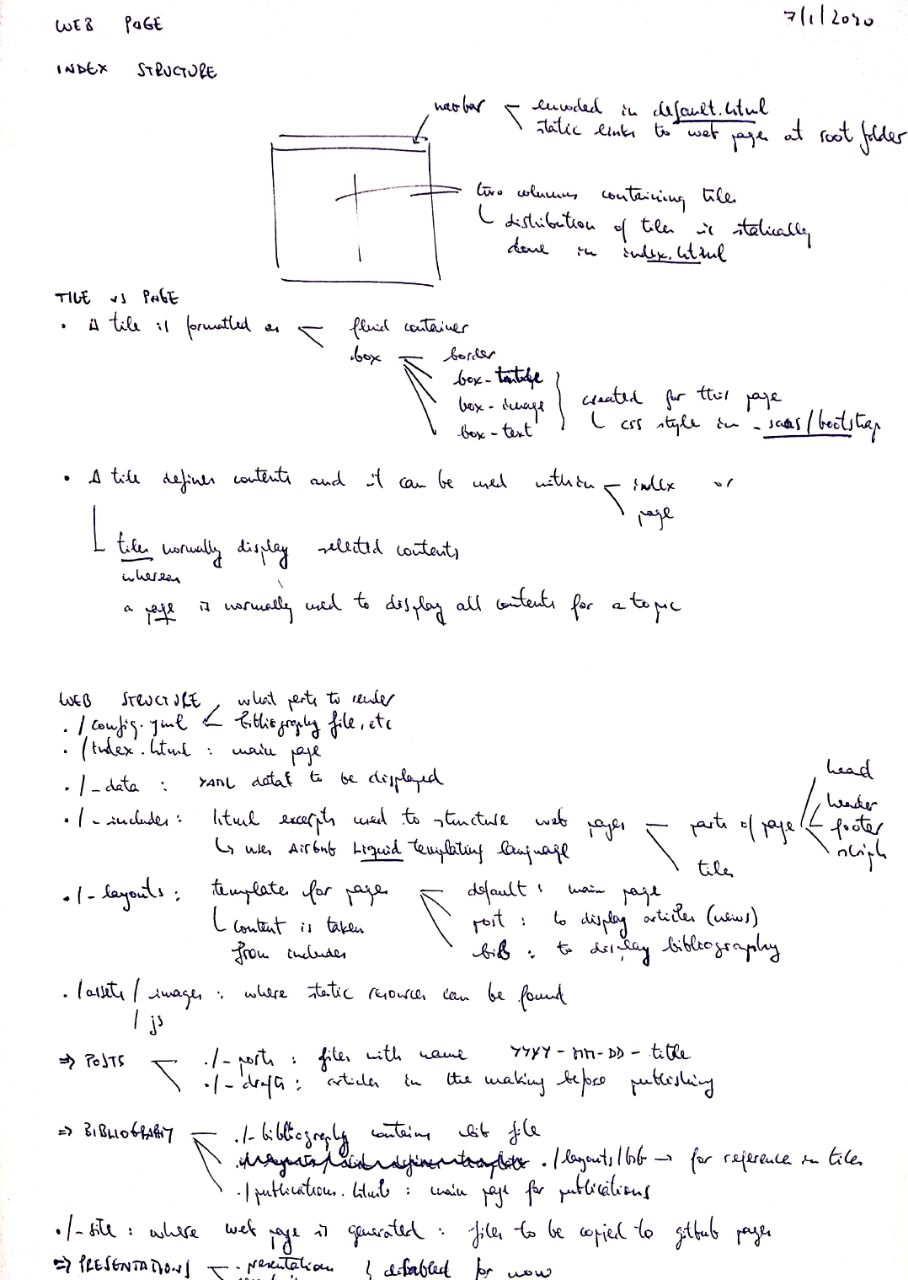 WEB PAGE
7/1/2020
INDEX STRUCTURE
navbar
encoded in default.html
static links to web pages at root folder
two columns containing tiles
distribution of tiles is statically
done in index.html
TILE vs PAGE
• A tile is formatted as
fluid container
box
border
box-
box-image
box-text
created for this page
css style in _saas/bootstrap
• A tile defines contents and it can be used within
index or
page
tiles normally display selected contents
whereas
a page is normally used to display all contents for a topic
WEB STRUCTURE
what parts to render
./config.yml
bibliography file, etc
./index.html : main page
./_data : YAML data to be displayed
head
./_includes : html excerpts used to structure web pages
parts of page
header
footer
scripts
↳ uses Airbnb Liquid templating language
tiles
./_layouts : template for pages
default : main page
content is taken
post : to display articles (news)
from includes
bib : to display bibliography
./assets/images : where static resources can be found
/js
⇒ POSTS
./_posts : files with name YYYY-MM-DD-title
./_drafts : articles in the making before publishing
⇒ BIBLIOGRAPHY
./_bibliography contains bib file
./layouts/bib → for reference in tiles
./publications.html : main page for publications
./_site : where web page is generated : files to be copied to github pages
⇒ PRESENTATIONS
presentations
} disabled for now